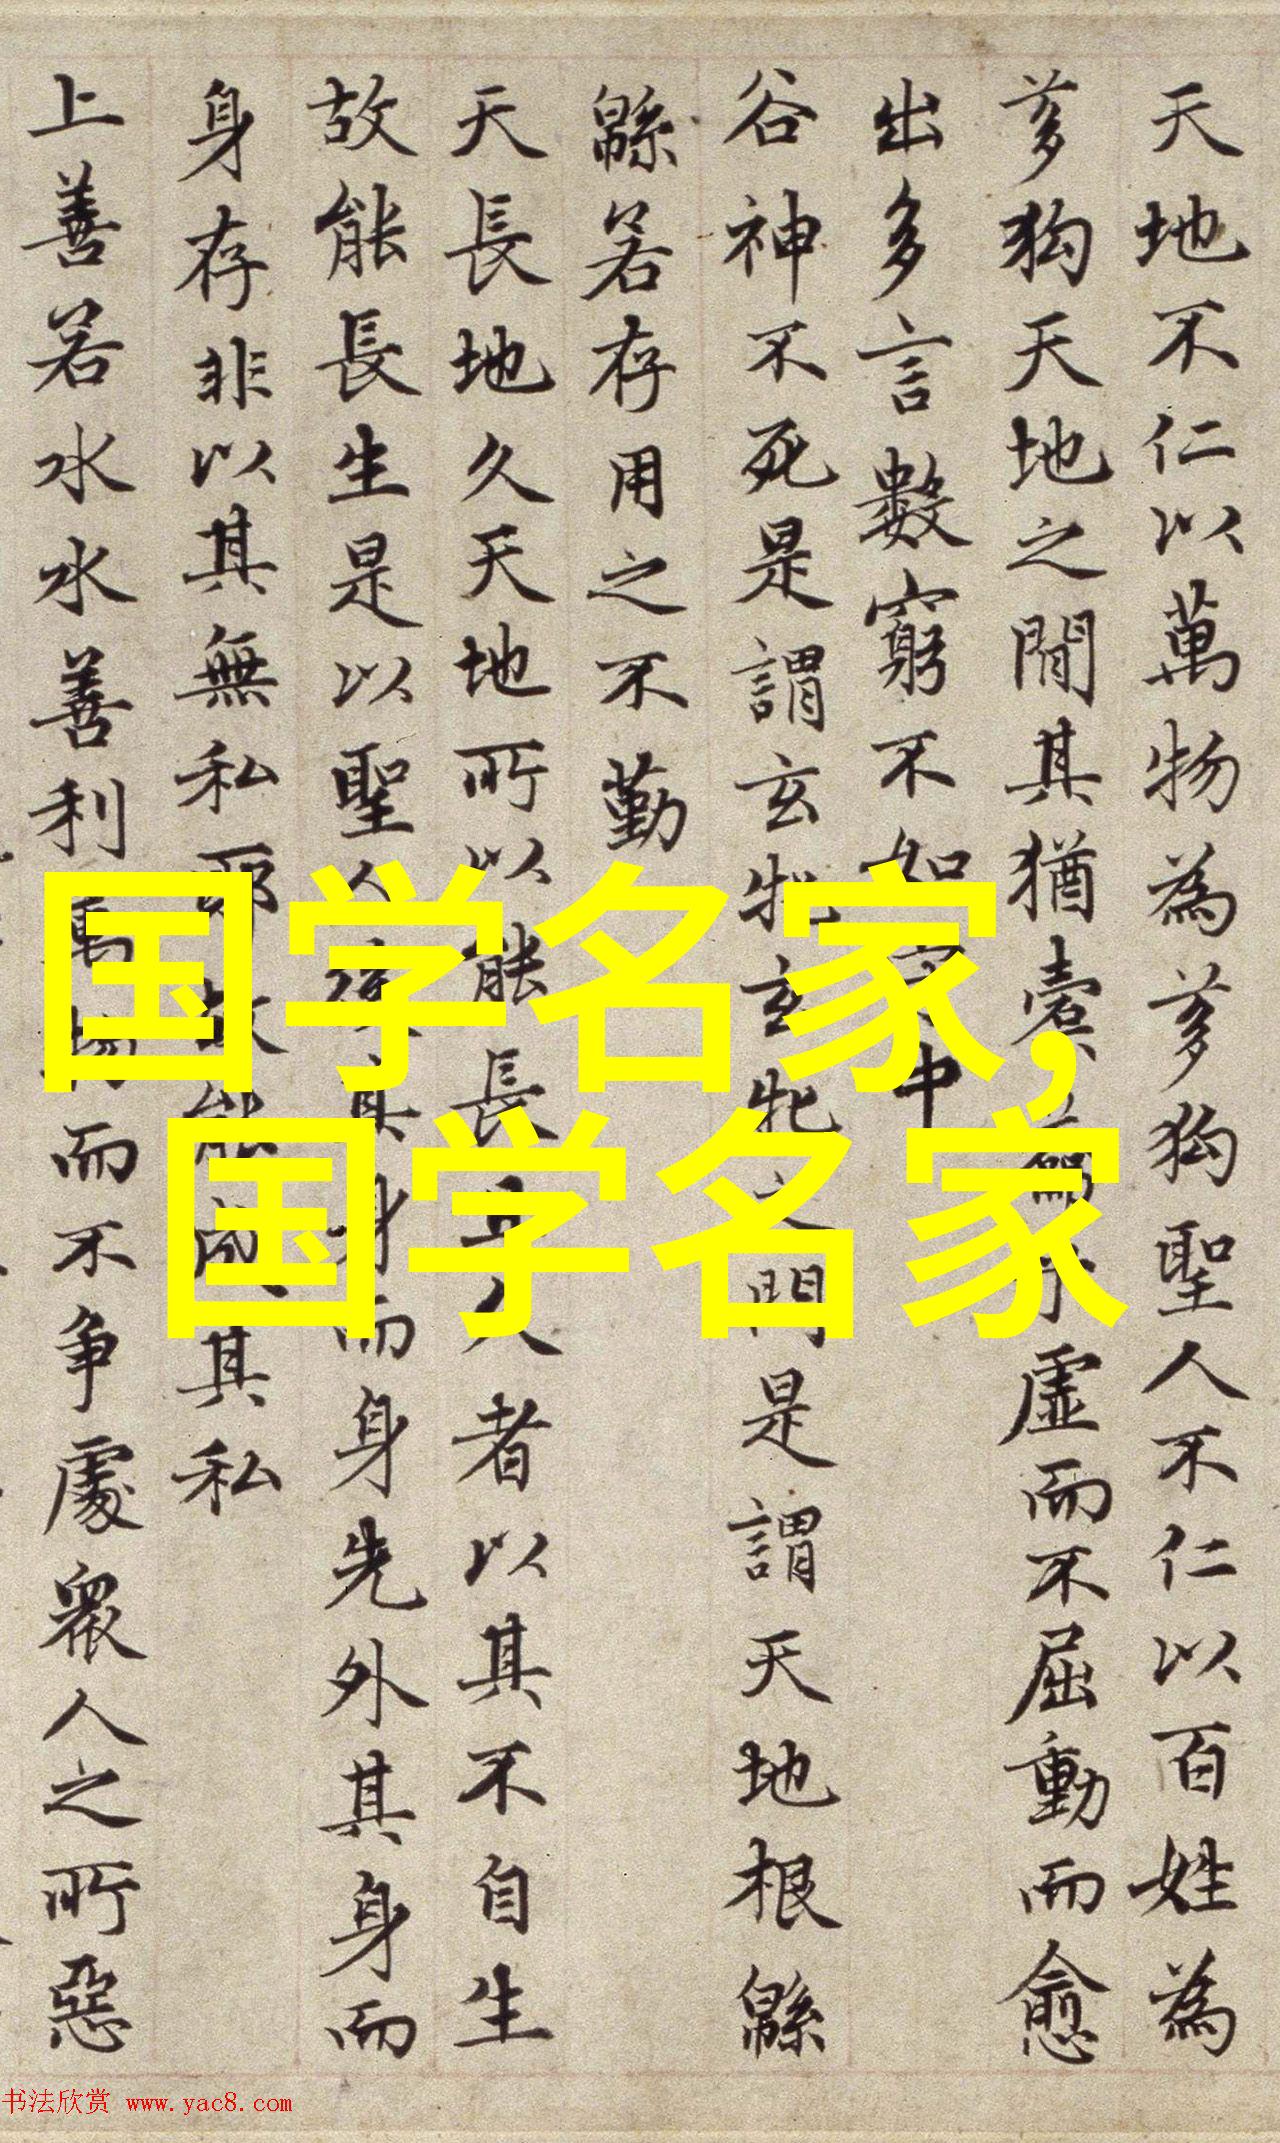 天地不仁以萬物為芻狗聖人不仁以百姓為
芻狗天地之間其猶橐籥乎虛而不屈動而愈
出多言數窮不如守中
谷神不死是謂玄牝玄牝之門是謂天地根緜
緜若存用之不勤
天長地久天地所以能長且久者以其不自生
故能長生是以聖人後其身而身先外其身而
身存非以其無私耶故能成其私
上善若水水善利萬物而不争處衆人之所惡
国学名家,
国学名家
书法欣赏 www.yac8.com